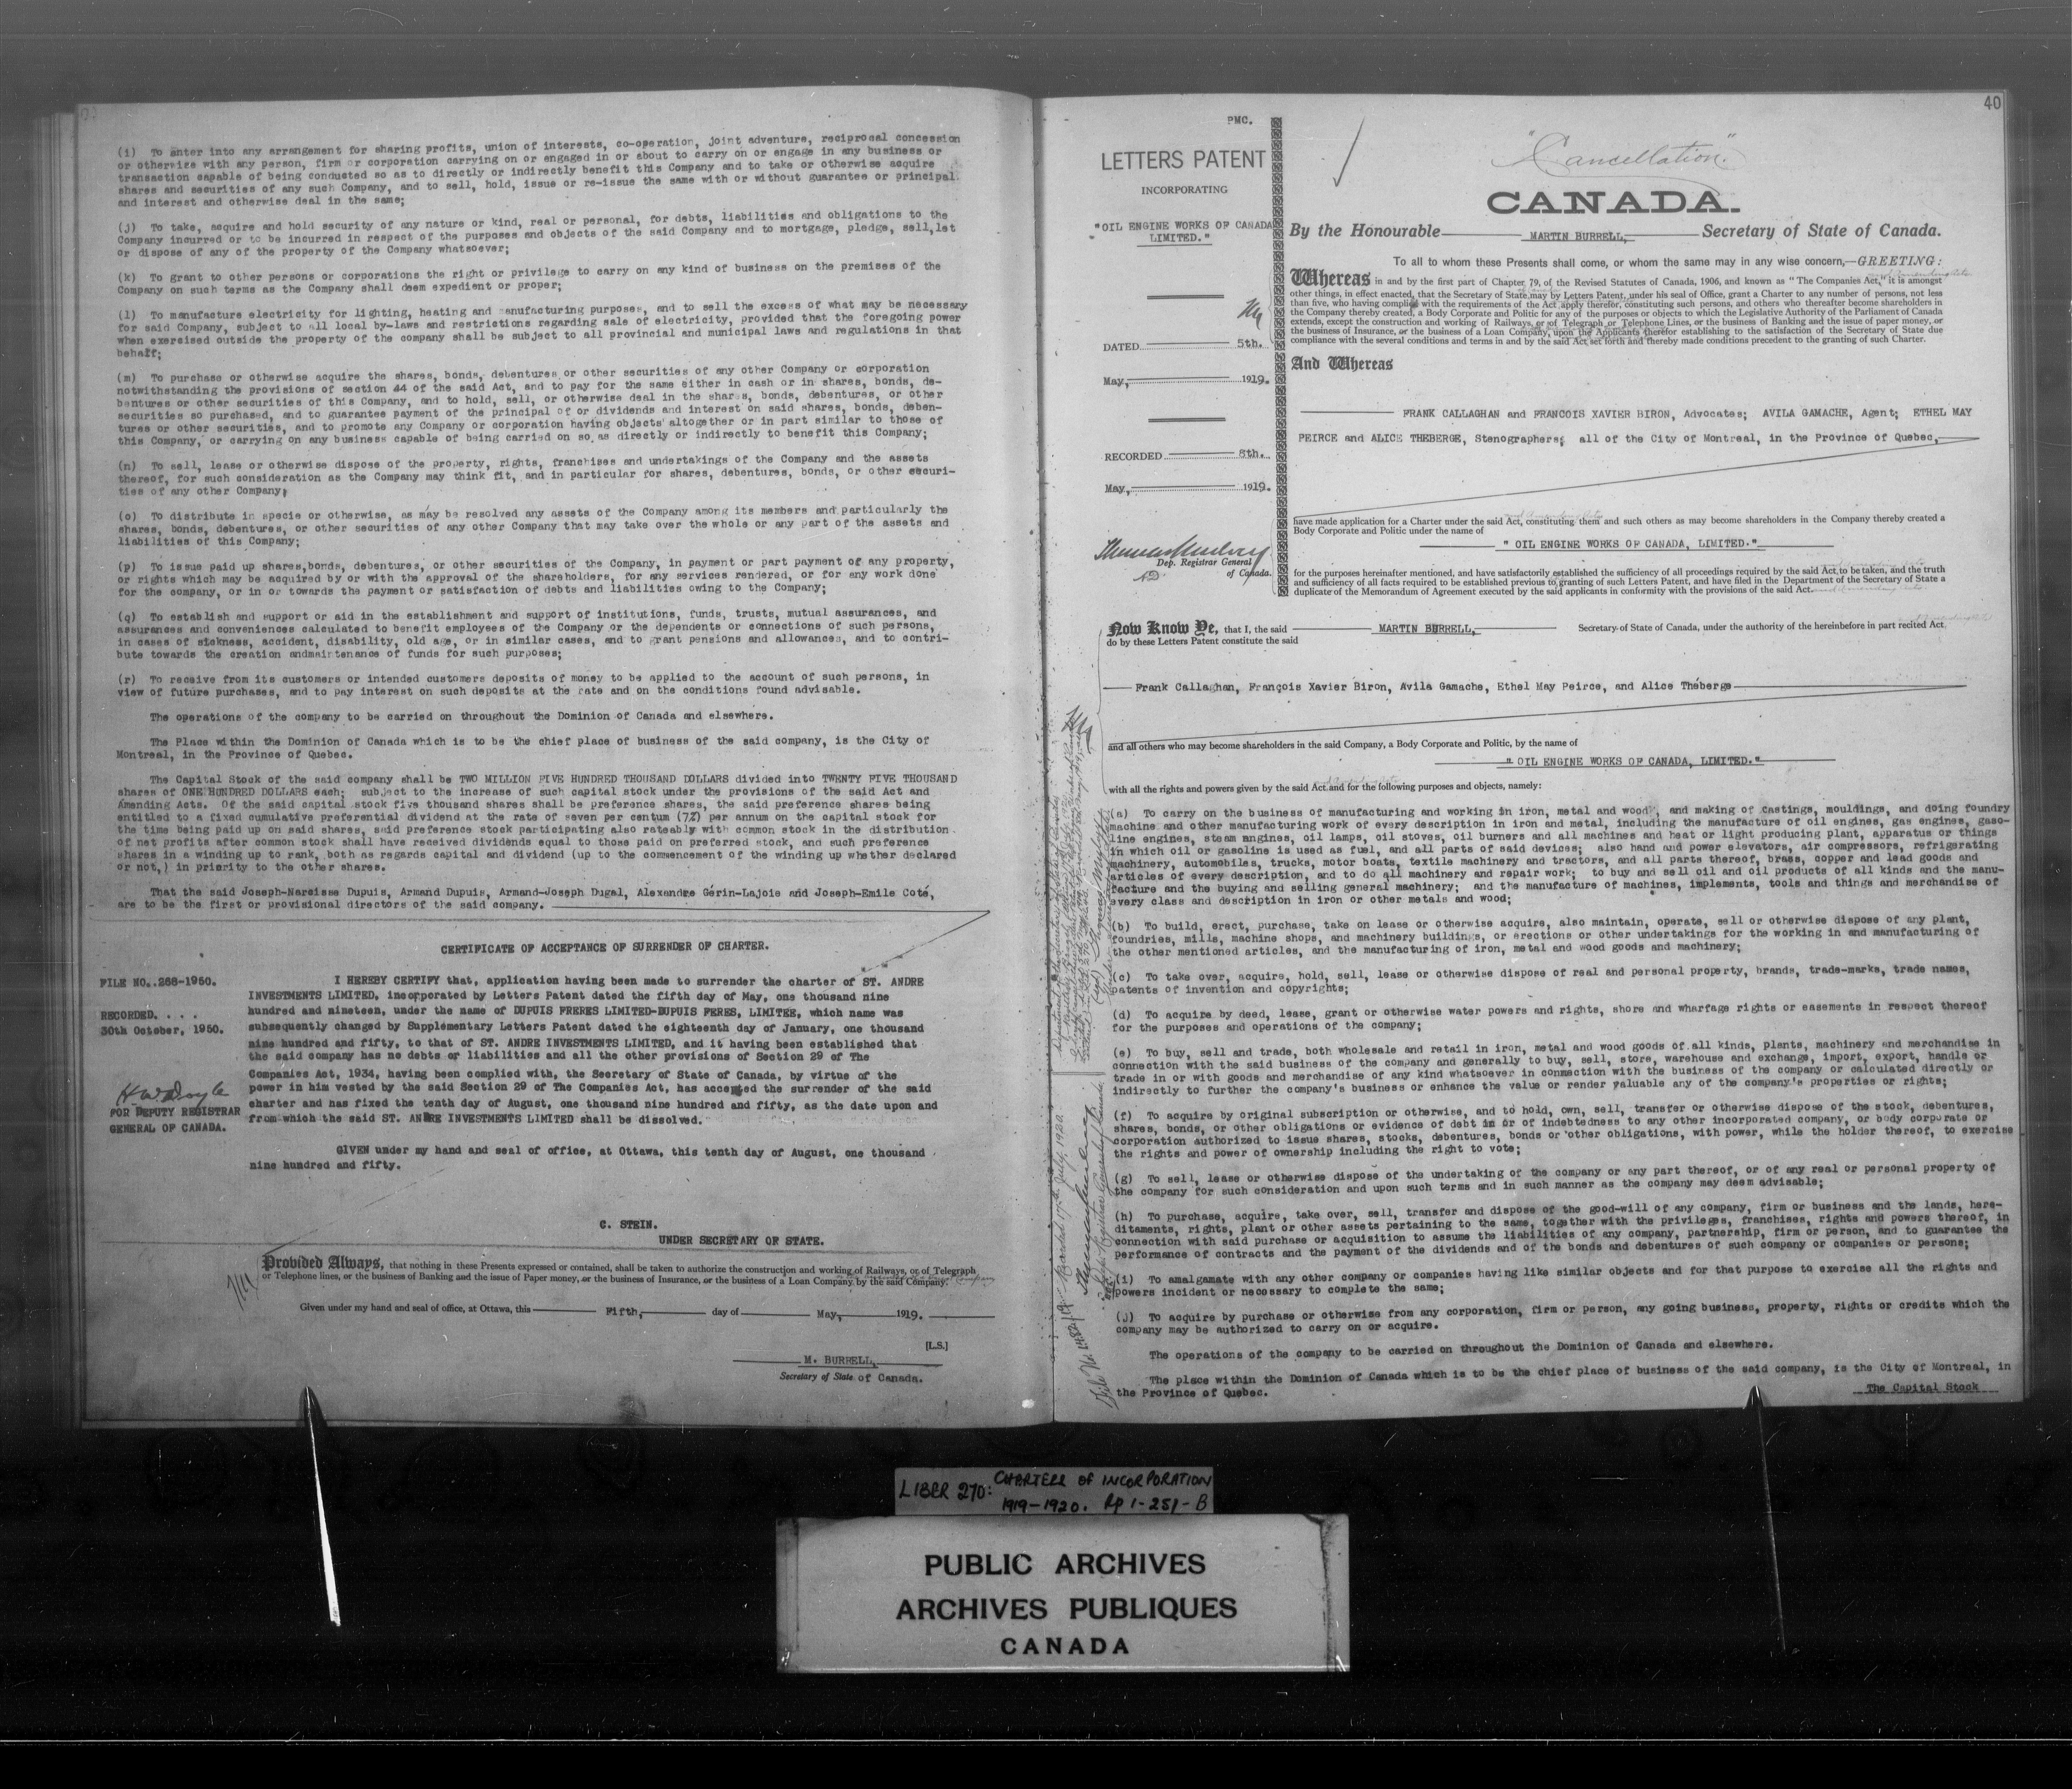 (i) To enter into any arrangement for sharing profits, union of interests, co-operation, joint adventure, reciprocal concession
or otherwise with any person, firm or corporation carrying on or engaged in or about to carry on or engage in any business or
transaction capable of being conducted so as to directly or indirectly benefit this Company and to take or otherwise acquire
shares and securities of any such Company, and to sell, hold, issue or re-issue the same with or without guarantee or principal
and interest and otherwise deal in the same;
(j) To take, acquire and hold security of any nature or kind, real or personal, for debts, liabilities and obligations to the
Company incurred or to be incurred in respect of the purposes and objects of the said Company and to mortgage, pledge, sell,let
or dispose of any of the property of the Company whatsoever;
(k) To grant to other persons or corporations the right or privilege to carry on any kind of business on the premises of the
Company on such terms as the Company shall deem expedient or proper;
(l) To manufacture electricity for lighting, heating and manufacturing purposes, and to sell the excess of what may be necessary
for said Company, subject to all local by-laws and restrictions regarding sale of electricity, provided that the foregoing power
when exercised outside the property of the company shall be subject to all provincial and municipal laws and regulations in that
behalf;
(m) To purchase or otherwise acquire the shares, bonds, debentures or other securities of any other Company or corporation
notwithstanding the provisions of section 44 of the said Act, and to pay for the same either in cash or in shares, bonds, de-
bentures or other securities of this Company, and to hold, sell, or otherwise deal in the shares, bonds, debentures, or other
securities so purchased, and to guarantee payment of the principal of or dividends and interest on said shares, bonds, deben-
tures or other securities, and to promote any Company or corporation having objects altogether or in part similar to those of
this Company, or carrying on any business capable of being carried on so as directly or indirectly to benefit this Company;
(n) To sell, lease or otherwise dispose of the property, rights, franchises and undertakings of the Company and the assets
thereof, for such consideration as the Company may think fit, and in particular for shares, debentures, bonds, or other securi-
ties of any other Company;
(o) To distribute in specie or otherwise, as may be resolved any assets of the Company among its members and particularly the
shares, bonds, debentures, or other securities of any other Company that may take over the whole or any part of the assets and
liabilities of this Company;
(p) To issue paid up shares,bonds, debentures, or other securities of the Company, in payment or part payment of any property,
or rights which may be acquired by or with the approval of the shareholders, for any services rendered, or for any work done
for the company, or in or towards the payment or satisfaction of debts and liabilities owing to the Company;
(q) To establish and support or aid in the establishment and support of institutions, funds, trusts, mutual assurances, and
assurances and conveniences calculated to benefit employees of the Company or the dependents or connections of such persons,
in cases of sickness, accident, disability, old age, or in similar cases, and to grant pensions and allowances, and to contri-
bute towards the creation andmaintenance of funds for such purposes;
(r) To receive from its customers or intended customers deposits of money to be applied to the account of such persons, in
view of future purchases, and to pay interest on such deposits at the rate and on the conditions found advisable.
The operations of the company to be carried on throughout the Dominion of Canada and elsewhere.
The Place within the Dominion of Canada which is to be the chief place of business of the said company, is the City of
Montreal, in the Province of Quebec.
The Capital Stock of the said company shall be TWO MILLION FIVE HUNDRED THOUSAND DOLLARS divided into TWENTY FIVE THOUSAND
shares of ONE HUNDRED DOLLARS each; subject to the increase of such capital stock under the provisions of the said Act and
Amending Acts. Of the said capital stock five thousand shares shall be preference shares, the said preference shares being
entitled to a fixed cumulative preferential dividend at the rate of seven per centum (7%) per annum on the capital stock for
the time being paid up on said shares, said preference stock participating also rateably with common stock in the distribution
of net profits after common stock shall have received dividends equal to those paid on preferred stock, and such preference
shares in a winding up to rank, both as regards capital and dividend (up to the commencement of the winding up whether declared
or not,) in priority to the other shares.
That the said Joseph-Narcisse Dupuis, Armand Dupuis, Armand-Joseph Dugal, Alexandre Gérin-Lajoie and Joseph-Emile Coté,
are to be the first or provisional directors of the said company.
CERTIFICATE OF ACCEPTANCE OF SURRENDER OF CHARTER.
FILE NO..268-1950.
RECORDED. . . .
30th October, 1950.
H W Doyle
FOR DEPUTY REGISTRAR
GENERAL OF CANADA.
I HEREBY CERTIFY that, application having been made to surrender the charter of ST. ANDRE
INVESTMENTS LIMITED, incorporated by Letters Patent dated the fifth day of May, one thousand nine
hundred and nineteen, under the name of DUPUIS FRERES LIMITED-DUPUIS FERES, LIMITEE, which name was
subsequently changed by Supplementary Letters Patent dated the eighteenth day of January, one thousand
nine hundred and fifty, to that of ST. ANDRE INVESTMENTS LIMITED, and it having been established that
the said company has no debts or liabilities and all the other provisions of Section 29 of The
Companies Act, 1934, having been complied with, the Secretary of State of Canada, by virtue of the
power in him vested by the said Section 29 of The Companies Act, has accepted the surrender of the said
charter and has fixed the tenth day of August, one thousand nine hundred and fifty, as the date upon and
from which the said ST. ANDRE INVESTMENTS LIMITED shall be dissolved.
GIVEN under my hand and seal of office, at Ottawa, this tenth day of August, one thousand
nine hundred and fifty.
C. STEIN.
UNDER SECRETARY OF STATE.
Provided Always, that nothing in these Presents expressed or contained, shall be taken to authorize the construction and working of Railways, or of Telegraph
or Telephone lines, or the business of Banking and the issue of Paper money, or the business of Insurance, or the business of a Loan Company by the said Company.
Given under my hand and seal of office, at Ottawa, this Fifth, day of May, 1919.
[L.S.]
M. BURRELL,
Secretary of State of Canada.
40
PMC.
LETTERS PATENT
INCORPORATING
"OIL ENGINE WORKS OF CANADA
LIMITED."
DATED 5th.
May, 1919.
RECORDED 8th.
May, 1919.
Thomas Mulvey
Dep. Registrar General
of Canada.
"Cancellation."
CANADA.
By the Honourable MARTIN BURRELL, Secretary of State of Canada.
To all to whom these Presents shall come, or whom the same may in any wise concern,—GREETING:
Whereas in and by the first part of Chapter 79, of the Revised Statutes of Canada, 1906, and known as "The Companies Act," it is amongst
other things, in effect enacted, that the Secretary of State may by Letters Patent, under his seal of Office, grant a Charter to any number of persons, not less
than five, who having complied with the requirements of the Act apply therefor, constituting such persons, and others who thereafter become shareholders in
the Company thereby created, a Body Corporate and Politic for any of the purposes or objects to which the Legislative Authority of the Parliament of Canada
extends, except the construction and working of Railways, or of Telegraph or Telephone Lines, or the business of Banking and the issue of paper money, or
the business of Insurance, or the business of a Loan Company, upon the Applicants therefor establishing to the satisfaction of the Secretary of State due
compliance with the several conditions and terms in and by the said Act set forth and thereby made conditions precedent to the granting of such Charter.
And Whereas
FRANK CALLAGHAN and FRANCOIS XAVIER BIRON, Advocates; AVILA GAMACHE, Agent; ETHEL MAY
PEIRCE and ALICE THEBERGE, Stenographers; all of the City of Montreal, in the Province of Quebec,
have made application for a Charter under the said Act, constituting them and such others as may become shareholders in the Company thereby created a
Body Corporate and Politic under the name of
" OIL ENGINE WORKS OF CANADA, LIMITED."
for the purposes hereinafter mentioned, and have satisfactorily established the sufficiency of all proceedings required by the said Act to be taken, and the truth
and sufficiency of all facts required to be established previous to granting of such Letters Patent, and have filed in the Department of the Secretary of State a
duplicate of the Memorandum of Agreement executed by the said applicants in conformity with the provisions of the said Act.
Now Know Ye, that I, the said MARTIN BURRELL, Secretary of State of Canada, under the authority of the hereinbefore in part recited Act
do by these Letters Patent constitute the said
Frank Callaghan, François Xavier Biron, Avila Gamache, Ethel May Peirce, and Alice Théberge
and all others who may become shareholders in the said Company, a Body Corporate and Politic, by the name of
" OIL ENGINE WORKS OF CANADA, LIMITED."
with all the rights and powers given by the said Act and for the following purposes and objects, namely:
(a) To carry on the business of manufacturing and working in iron, metal and wood, and making of castings, mouldings, and doing foundry
machine and other manufacturing work of every description in iron and metal, including the manufacture of oil engines, gas engines, gaso-
line engines, steam engines, oil lamps, oil stoves, oil burners and all machines and heat or light producing plant, apparatus or things
in which oil or gasoline is used as fuel, and all parts of said devices; also hand and power elevators, air compressors, refrigerating
machinery, automobiles, trucks, motor boats, textile machinery and tractors, and all parts thereof, brass, copper and lead goods and
articles of every description, and to do all machinery and repair work; to buy and sell oil and oil products of all kinds and the manu-
facture and the buying and selling general machinery; and the manufacture of machines, implements, tools and things and merchandise of
every class and description in iron or other metals and wood;
(b) To build, erect, purchase, take on lease or otherwise acquire, also maintain, operate, sell or otherwise dispose of any plant,
foundries, mills, machine shops, and machinery buildings, or erections or other undertakings for the working in and manufacturing of
the other mentioned articles, and the manufacturing of iron, metal and wood goods and machinery;
(c) To take over, acquire, hold, sell, lease or otherwise dispose of real and personal property, brands, trade-marks, trade names,
patents of invention and copyrights;
(d) To acquire by deed, lease, grant or otherwise water powers and rights, shore and wharfage rights or easements in respect thereof
for the purposes and operations of the company;
(e) To buy, sell and trade, both wholesale and retail in iron, metal and wood goods of all kinds, plants, machinery and merchandise in
connection with the said business of the company and generally to buy, sell, store, warehouse and exchange, import, export, handle or
trade in or with goods and merchandise of any kind whatsoever in connection with the business of the company or calculated directly or
indirectly to further the company's business or enhance the value or render valuable any of the company's properties or rights;
(f) To acquire by original subscription or otherwise, and to hold, own, sell, transfer or otherwise dispose of the stock, debentures,
shares, bonds, or other obligations or evidence of debt in or of indebtedness to any other incorporated company, or body corporate or
corporation authorized to issue shares, stocks, debentures, bonds or other obligations, with power, while the holder thereof, to exercise
the rights and power of ownership including the right to vote;
(g) To sell, lease or otherwise dispose of the undertaking of the company or any part thereof, or of any real or personal property of
the company for such consideration and upon such terms and in such manner as the company may deem advisable;
(h) To purchase, acquire, take over, sell, transfer and dispose of the good-will of any company, firm or business and the lands, here-
ditaments, rights, plant or other assets pertaining to the same, together with the privileges, franchises, rights and powers thereof, in
connection with said purchase or acquisition to assume the liabilities of any company, partnership, firm or person, and to guarantee the
performance of contracts and the payment of the dividends and of the bonds and debentures of such company or companies or persons;
(i) To amalgamate with any other company or companies having like similar objects and for that purpose to exercise all the rights and
powers incident or necessary to complete the same;
(j) To acquire by purchase or otherwise from any corporation, firm or person, any going business, property, rights or credits which the
company may be authorized to carry on or acquire.
The operations of the company to be carried on throughout the Dominion of Canada and elsewhere.
The place within the Dominion of Canada which is to be the chief place of business of the said company, is the City of Montreal, in
the Province of Quebec.
The Capital Stock
Recorded 17th July, 1920.
Thomas Mulvey
LIBER 270: CHARTERS OF INCORPORATION
1919-1920. Pp 1-251-B
PUBLIC ARCHIVES
ARCHIVES PUBLIQUES
CANADA